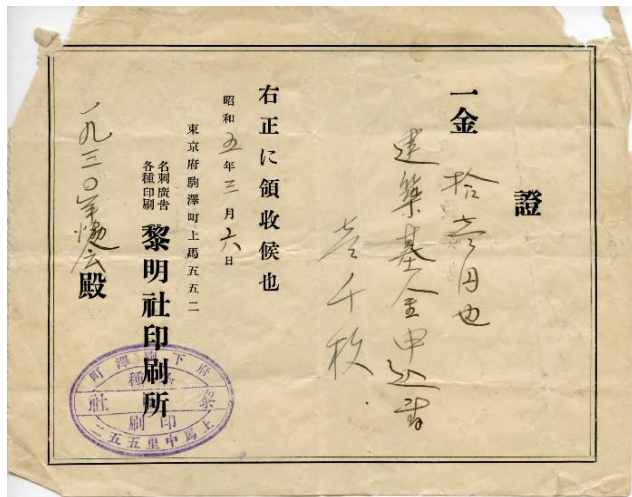 證
一金 拾壹円也
建築基金申込書
壹千枚
右正に領收候也
昭和五年三月六日
東京府駒澤町上馬五五二
名刺廣告
各種印刷
黎明社印刷所
一九三〇年協会殿
府下駒澤町
各種
黎 社
印刷
上馬中里五五二